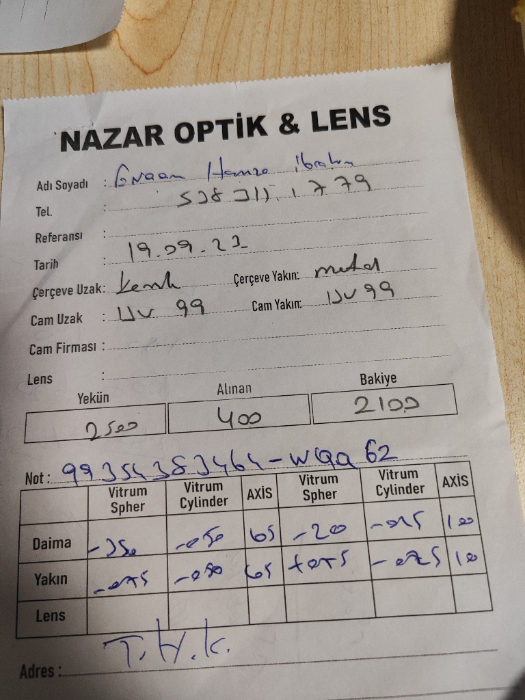 NAZAR OPTİK & LENS
Adı Soyadı : Hamza ibrahm
Tel. : 538 315 1 779
Referansı :
Tarih : 19.09.23
Çerçeve Uzak: Kemik Çerçeve Yakın: metal
Cam Uzak : UV 99 Cam Yakın: UV 99
Cam Firması :
Lens :
Yekün Alınan Bakiye
2500 400 2100
Not : 99354383464-WQQ 62
Vitrum Spher Vitrum Cylinder AXİS Vitrum Spher Vitrum Cylinder AXİS
Daima -050 65 -200 100
Yakın -075 -050 65 +075 -025 100
Lens
T.H.K.
Adres :